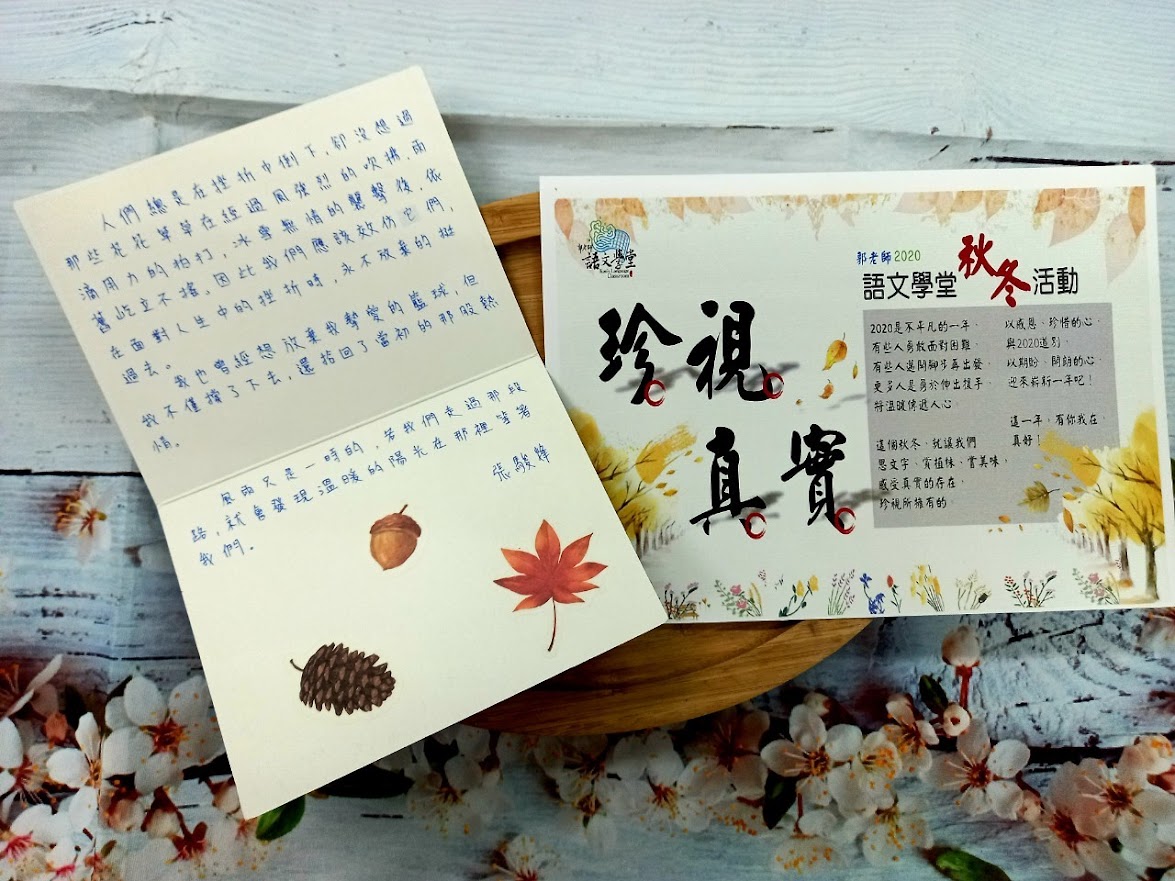 人們總是在挫折中倒下,卻沒想過
那些花花草草在經過風強烈的吹拂,雨
滴用力的拍打,冰雪無情的襲擊後,依
舊屹立不搖。因此我們應該效仿它們,
在面對人生中的挫折時,永不放棄的挺
過去。
我也曾經想放棄我摯愛的籃球,但
我不僅撐了下去,還拾回了當初的那股熱
情。
風雨只是一時的,若我們走過那段
路,就會發現溫暖的陽光在那裡等著
我們。
張駿
郭老師
語文學堂
郭老師2020
語文學堂秋冬活動
珍視
真實
2020是不平凡的一年,
有些人勇敢面對困難,
有些人邁開腳步再出發,
更多人是勇於伸出援手,
將溫暖傳遞人心。
這個秋冬,就讓我們
思文字、賞植栽、嘗美味,
感受真實的存在,
珍視所擁有的。
以感恩、珍惜的心,
與2020道別,
以期盼、開朗的心,
迎來嶄新一年吧!
這一年,有你我在,
真好!